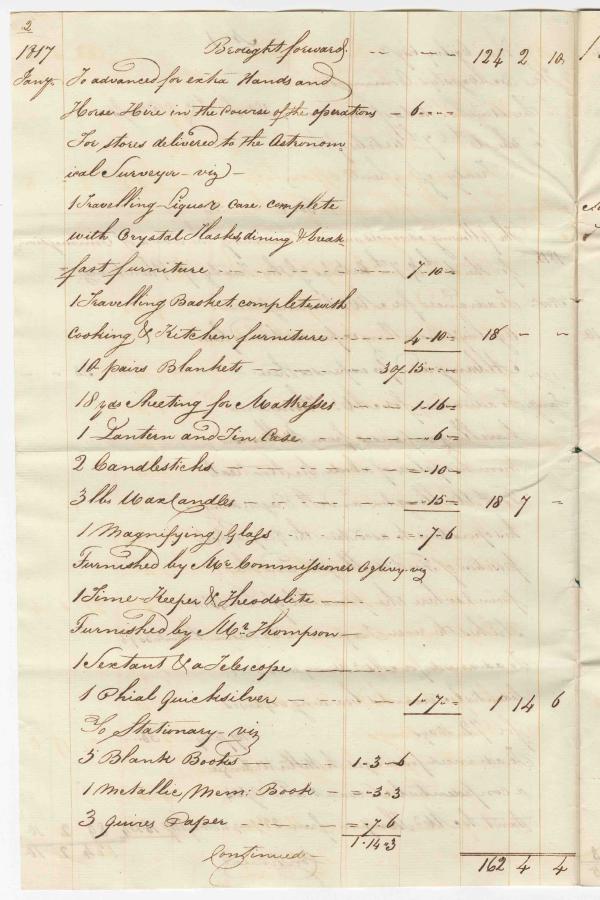 2
1817 Brought forward - - - - - 124 2 10
Jany. To advanced for extra Hands and
Horse Hire in the course of the operations - 6 - - - -
For stores delivered to the Astronom-
ical Surveyor - viz -
1 Travelling Liquor Case complete
with Crystal Flasks, dining & break-
-fast furniture - - - - - - 7 - 10 - =
1 Travelling Basket complete with
Cooking & Kitchen furniture - - - - 4 - 10 - = 18 - -
10 pairs Blankets - - - - 30/ 15 - - -
18 yds Sheeting for Mattresses 1 - 16 - =
1 Lantern and Tin Case - - - - 6 - =
2 Candlesticks = - 10 - =
3 lbs Wax Candles - - - - - - 15 - = 18 7 -
1 Magnifying Glass - - - - 7 - 6
Furnished by Mr. Commissioner Ogilvy - viz
1 Time-Keeper & Theodolite - -
Furnished by Mr. Thompson -
1 Sextant & a Telescope -
1 Phial Quicksilver - - - - 1 - 7 - = 1 14 6
To Stationary - viz
5 Blank Books - - - 1 - 3 - 6
1 Metallic Mem: Book - = - 3 - 3
3 Quires Paper - - - - = - 7 - 6
1 - 14 - 3
Continued - 162 4 4